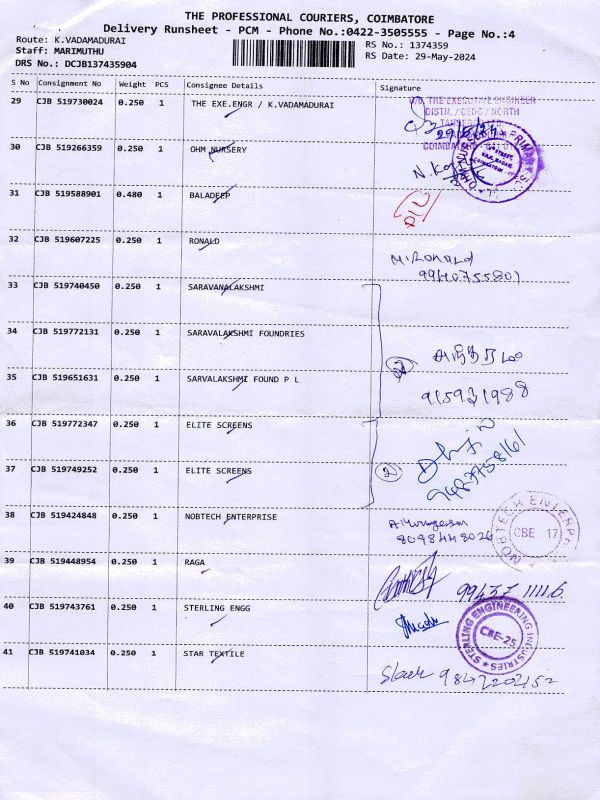 THE PROFESSIONAL COURIERS, COIMBATORE
Delivery Runsheet - PCM - Phone No.:0422-3505555 - Page No.:4
Route: K.VADAMADURAI
Staff: MARIMUTHU
DRS No.: DCJB137435904
RS No.: 1374359
RS Date: 29-May-2024
S No Consignment No Weight PCS Consignee Details Signature
29 CJB 519730024 0.250 1 THE EXE.ENGR / K.VADAMADURAI
30 CJB 519266359 0.250 1 OHM NURSERY
31 CJB 519588901 0.480 1 BALADEEP
32 CJB 519607225 0.250 1 RONALD
9940755801
33 CJB 519740450 0.250 1 SARAVANALAKSHMI
34 CJB 519772131 0.250 1 SARAVALAKSHMI FOUNDRIES
35 CJB 519651631 0.250 1 SARVALAKSHMI FOUND P L
36 CJB 519772347 0.250 1 ELITE SCREENS
37 CJB 519749252 0.250 1 ELITE SCREENS
2
38 CJB 519424848 0.250 1 NOBTECH ENTERPRISE
A.Murugesan
8098448026
CBE 17
39 CJB 519448954 0.250 1 RAGA
99437 11116
40 CJB 519743761 0.250 1 STERLING ENGG
STERLING ENGINEERING INDUSTRIES
CBE-25
41 CJB 519741034 0.250 1 STAR TEXTILE
9847202152